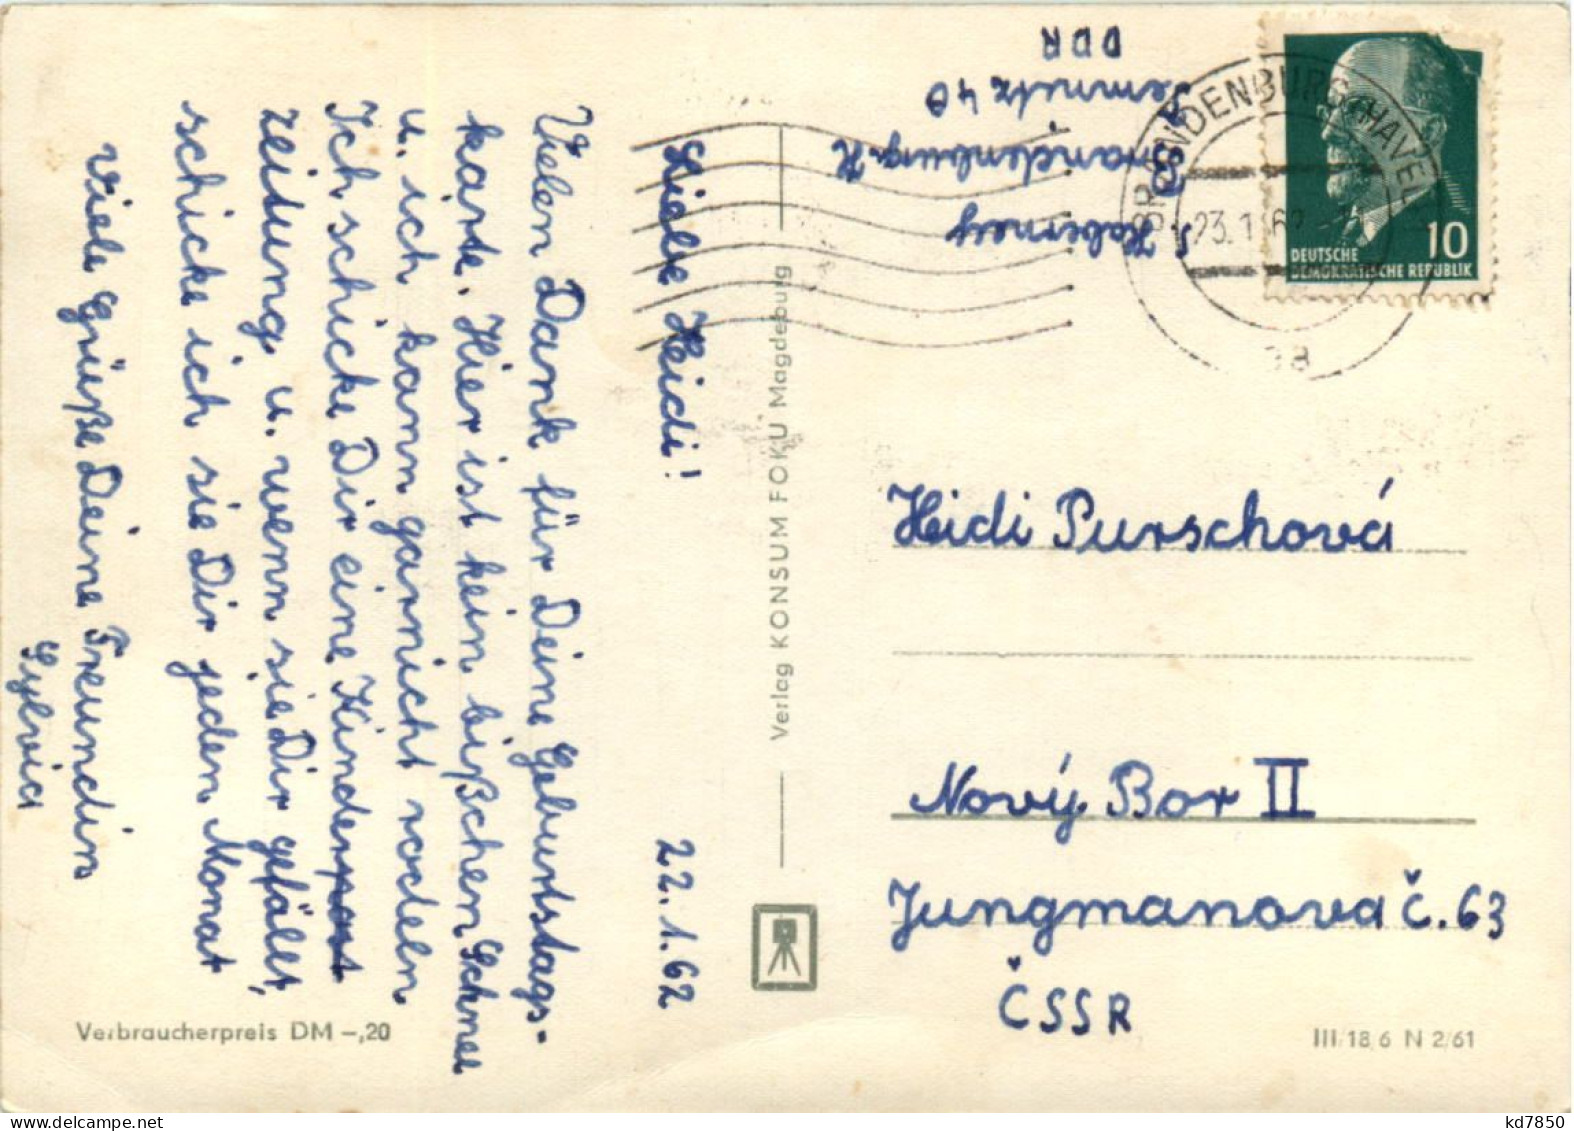 Liebe Heidi! 22.1.62
Vielen Dank für Deine Geburtstags-
karte. Hier ist kein bißchen Schnee
u. ich kann garnicht rodeln
Ich schicke Dir eine Kinderpost
zeitung u. wenn sie Dir gefällt,
schicke ich sie Dir jeden Monat
Viele Grüße Deine Freundin
Sylvia
Verbraucherpreis DM –,20
Verlag KONSUM FOKU Magdeburg
S. Haberney
Brandenburg-H
40
DDR
BRANDENBURG (HAVEL)
23.1.62
10
DEUTSCHE
DEMOKRATISCHE REPUBLIK
Heidi Purschová
Nový Bor II
Jungmanova č. 63
ČSSR
III/18/6 N 2/61
kd7850